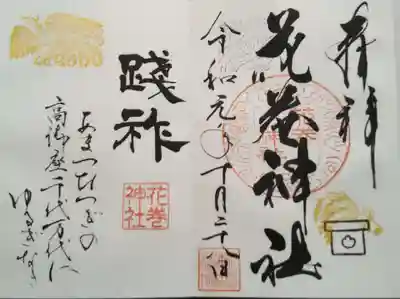 奉拝
花巻神社
令和元年十月二十八日
踐祚
花巻神社
あまつひつぎの
高御座千代万代に
ゆるぎなき